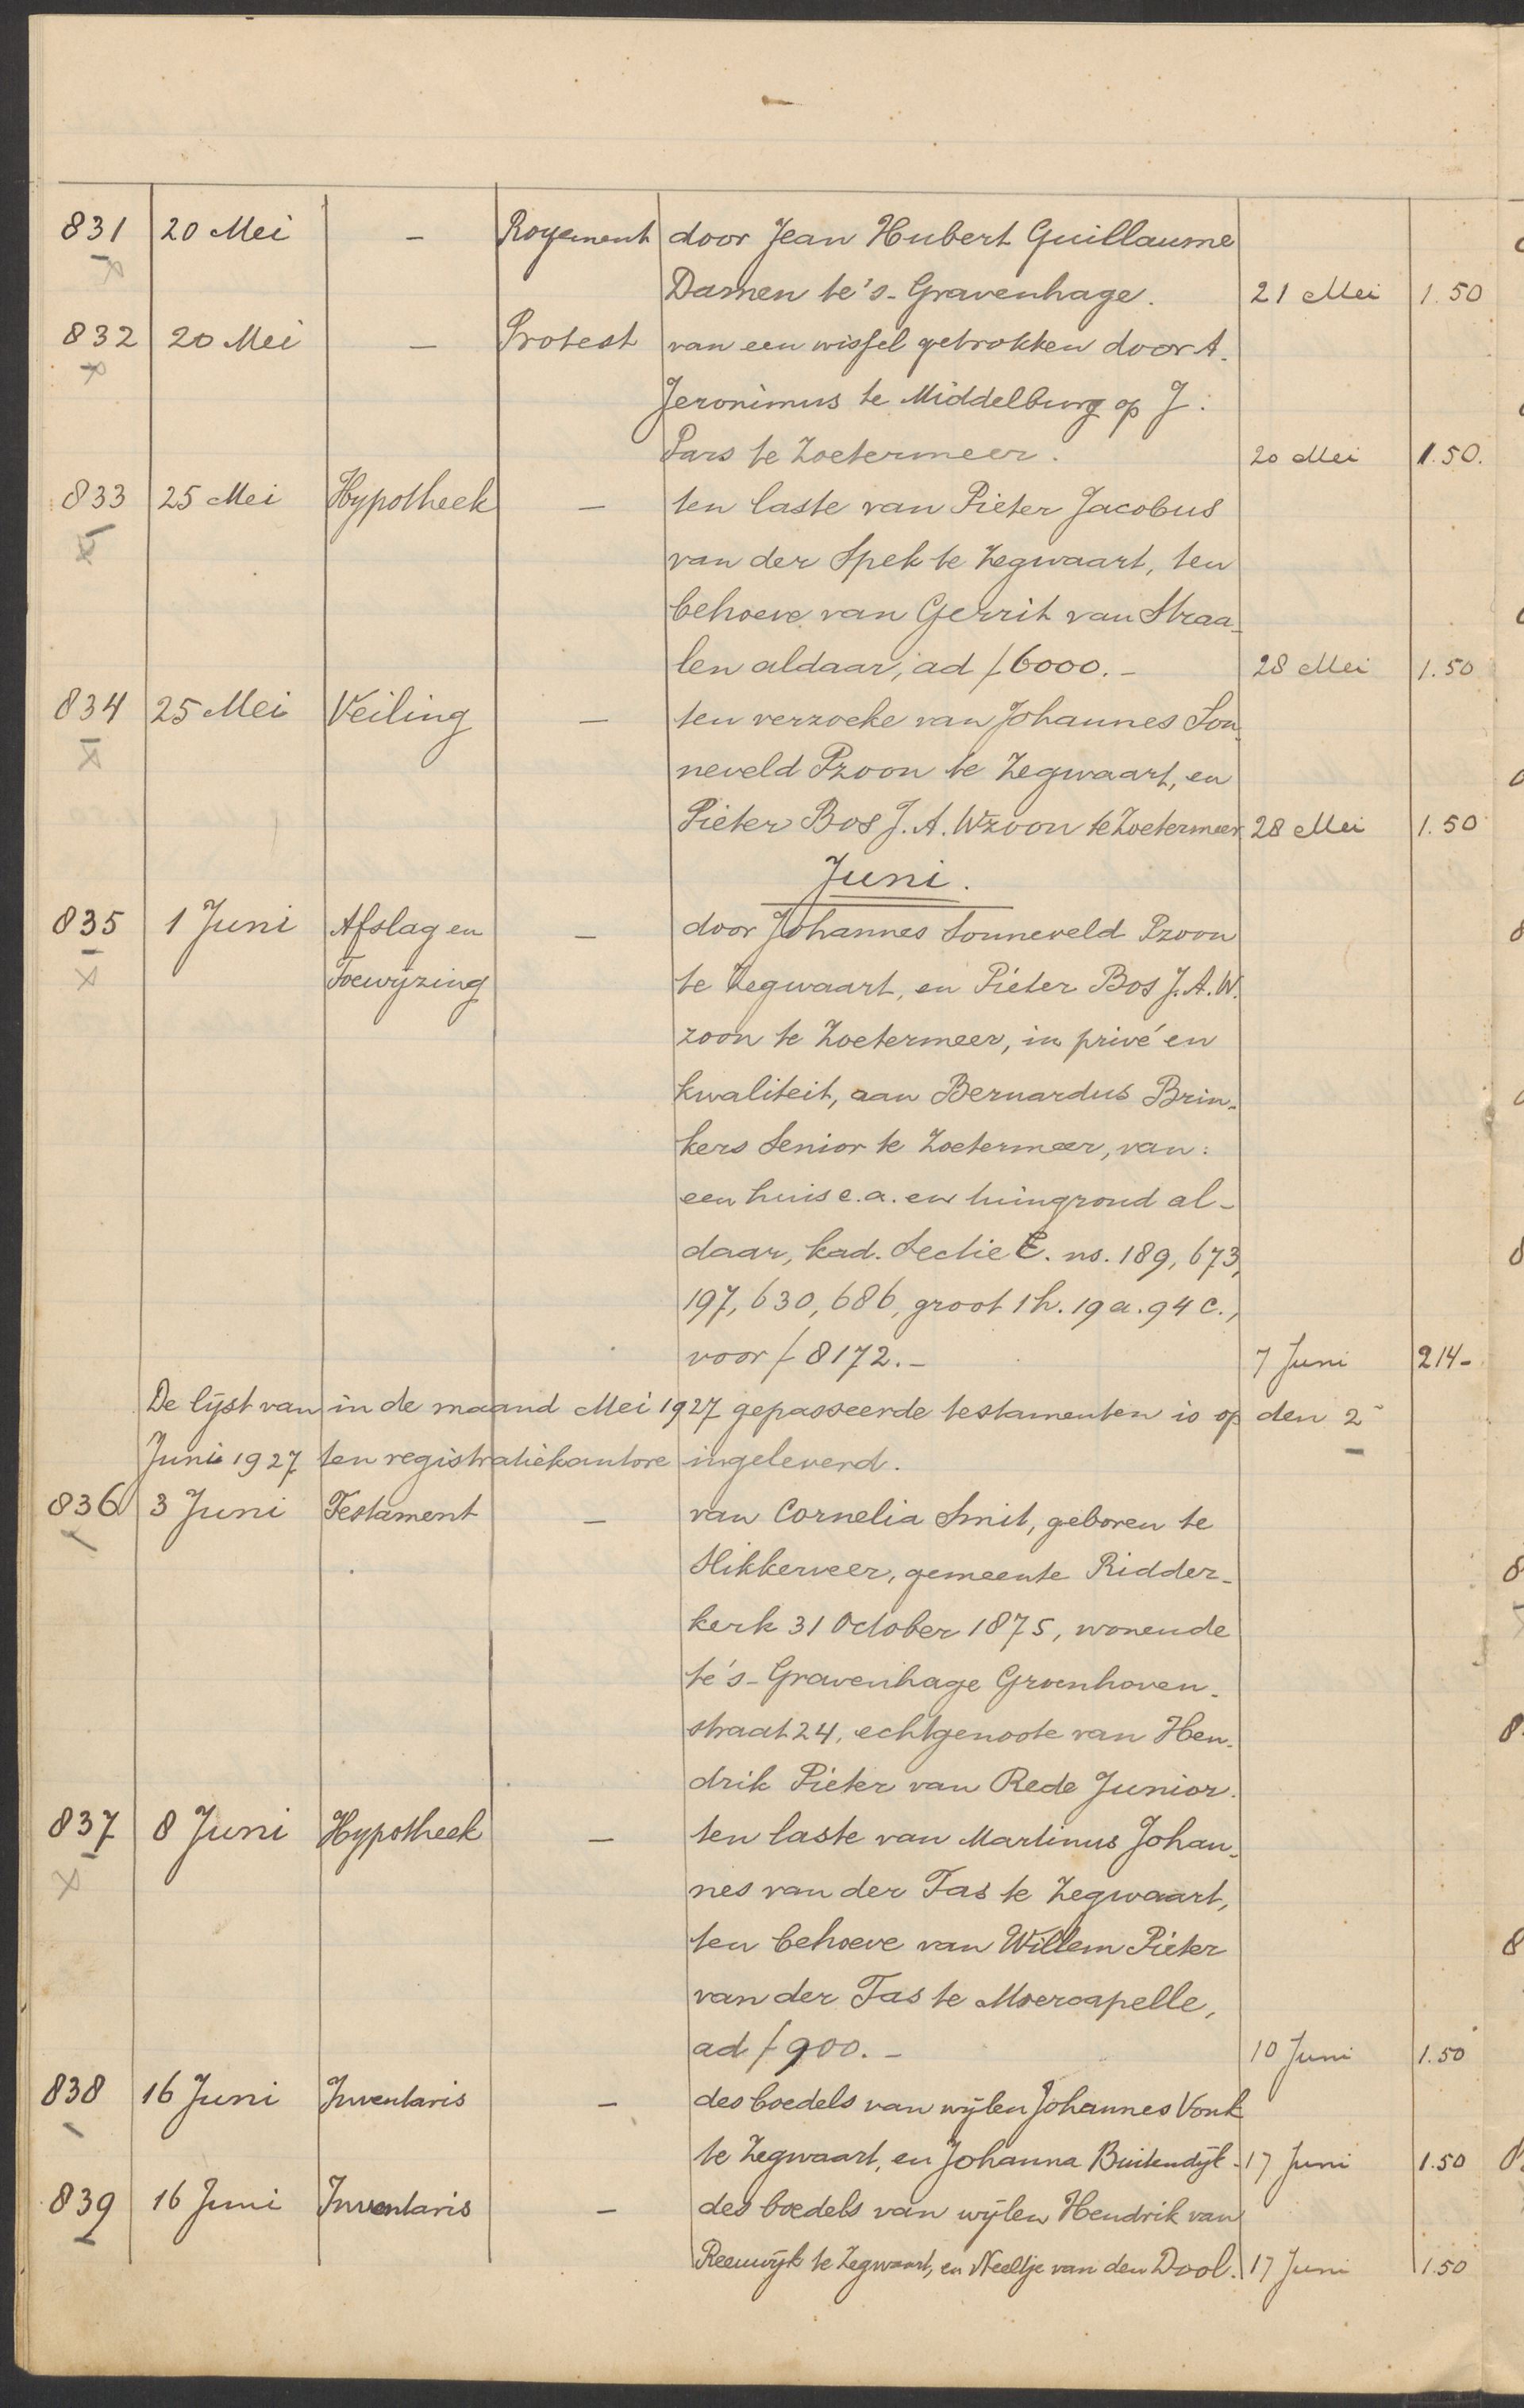 831 20 Mei – Royement door Jean Hubert Guillaume
Damen te 's-Gravenhage. 21 Mei 1.50
832 20 Mei – Protest van een wissel getrokken door A.
Jeronimus te Middelburg op J.
Pars te Zoetermeer. 20 Mei 1.50.
833 25 Mei Hypotheek – ten laste van Pieter Jacobus
van der Spek te Zegwaart, ten
behoeve van Gerrit van Straa-
len aldaar, ad f 6000.-  28 Mei 1.50
834 25 Mei Veiling – ten verzoeke van Johannes Son-
neveld Pzoon te Zegwaart, en
Pieter Bos J.A.Wzoon te Zoetermeer 28 Mei 1.50
Juni.
835 1 Juni Afslag en – door Johannes Sonneveld Pzoon
Toewijzing te Zegwaart, en Pieter Bos J.A.W.
zoon te Zoetermeer, in privé en
kwaliteit, aan Bernardus Brin-
kers Senior te Zoetermeer, van:
een huis c.a. en tuingrond al-
daar, kad. Sectie E. ns. 189, 673,
197, 630, 686, groot 1 h. 19 a. 94 c.,
voor f 8172.- 7 Juni 214-
De lijst van in de maand Mei 1927 gepasseerde testamenten is op den 2
Juni 1927 ten registratiekantore ingeleverd.
836 3 Juni Testament – van Cornelia Smit, geboren te
Slikkerveer, gemeente Ridder-
kerk 31 October 1875, wonende
te 's-Gravenhage Groenhoven-
straat 24, echtgenoote van Hen-
drik Pieter van Rede Junior.
837 8 Juni Hypotheek – ten laste van Martinus Johan-
nes van der Tas te Zegwaart,
ten behoeve van Willem Pieter
van der Tas te Moercapelle,
ad f 900.- 10 Juni 1.50
838 16 Juni Inventaris – des boedels van wijlen Johannes Vonk
te Zegwaart, en Johanna Buitendijk. 17 Juni 1.50
839 16 Juni Inventaris – des boedels van wijlen Hendrik van
Reeuwijk te Zegwaart, en Neeltje van den Dool. 17 Juni 1.50